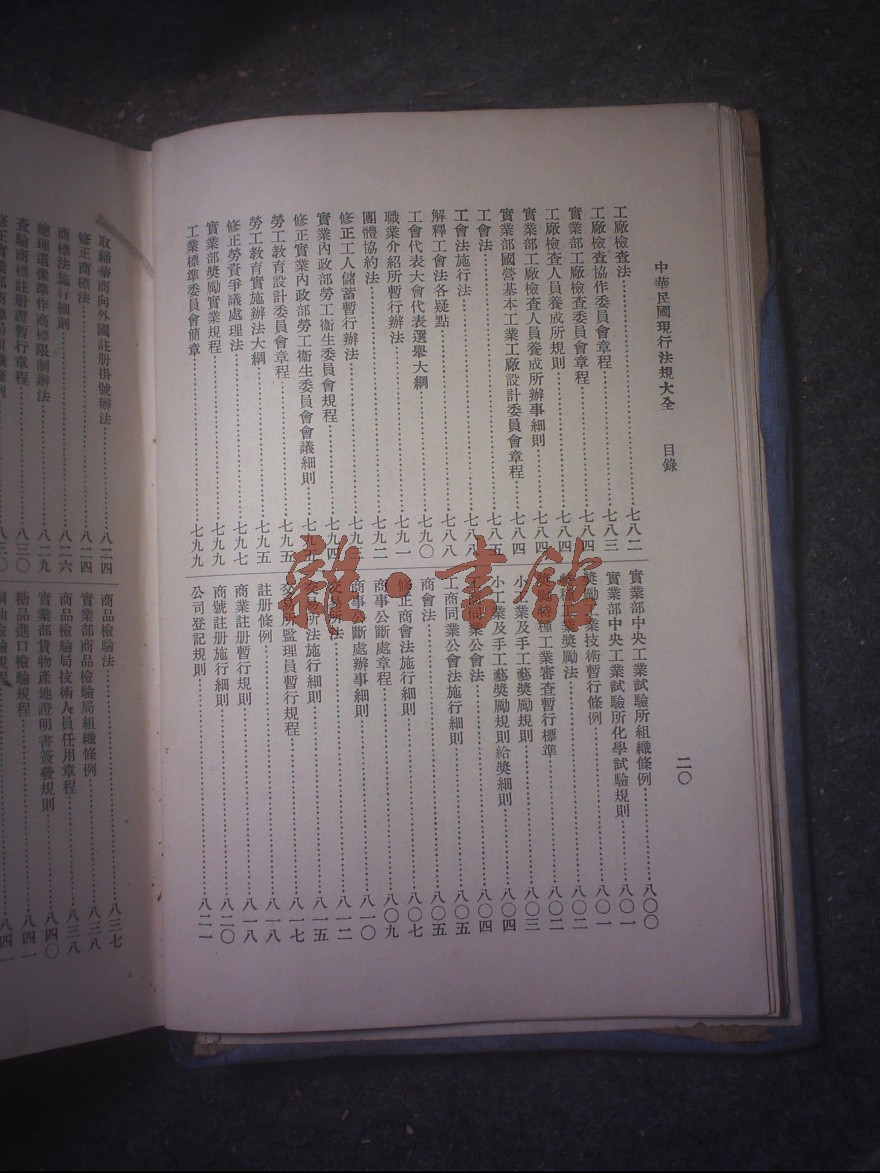 中華民國現行法規大全 目錄 二〇
工廠檢查法……七八二
工廠檢查協作委員會章程……七八三
實業部工廠檢查委員會章程……七八四
工廠檢查人員養成所規則……七八四
實業部工廠檢查人員養成所辦事細則……七八四
實業部國營基本工業工廠設計委員會章程……七八四
工會法……七八五
工會法施行法……七八八
解釋工會法各疑點……七八八
工會代表大會代表選舉大綱……七九〇
職業介紹所暫行辦法……七九一
團體協約法……七九二
修正工人儲蓄暫行辦法……七九三
實業內政部勞工衞生委員會規程……七九四
修正實業內政部勞工衞生委員會會議細則……七九五
勞工教育設計委員會章程……七九五
勞工教育實施辦法大綱……七九五
修正勞資爭議處理法……七九七
實業部獎勵實業規程……七九九
工業標準委員會簡章……七九九
實業部中央工業試驗所組織條例……八〇〇
實業部中央工業試驗所化學試驗規則……八〇一
獎勵工業技術暫行條例……八〇一
特種工業獎勵法……八〇二
獎勵特種工業審查暫行標準……八〇二
小工業及手工藝獎勵規則……八〇三
小工業及手工藝獎勵規則給獎細則……八〇四
工商同業公會法……八〇四
工商同業公會法施行細則……八〇五
商會法……八〇五
修正商會法施行細則……八〇七
商事公斷處章程……八〇九
商事公斷處辦事細則……八一〇
交易所法……八一二
交易所法施行細則……八一五
交易所監理員暫行規程……八一七
註册條例……八一八
商業註册暫行規則……八一八
商號註册施行細則……八二〇
公司登記規則……八二一
取締華商向外國註册掛號辦法……八二四
修正商標法……八二四
商標法施行細則……八二六
總理遺像準作商標限制辦法……八二九
查驗商標註册證暫行章程……八三〇
修正實業部商標局組織條例……八三〇
商品檢驗法……八三七
實業部商品檢驗局組織條例……八三八
商品檢驗局技術人員任用章程……八三八
實業部貨物產地證明書簽發規則……八四〇
糖品進口檢驗規程……八四一
桐油檢驗規程……八四一
雜·書館